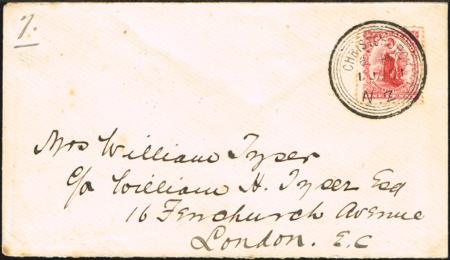 1.
CHRISTCHURCH
N.Z.
Mrs William Tyser
c/o William H. Tyser Esq
16 Fenchurch Avenue
London. E.C